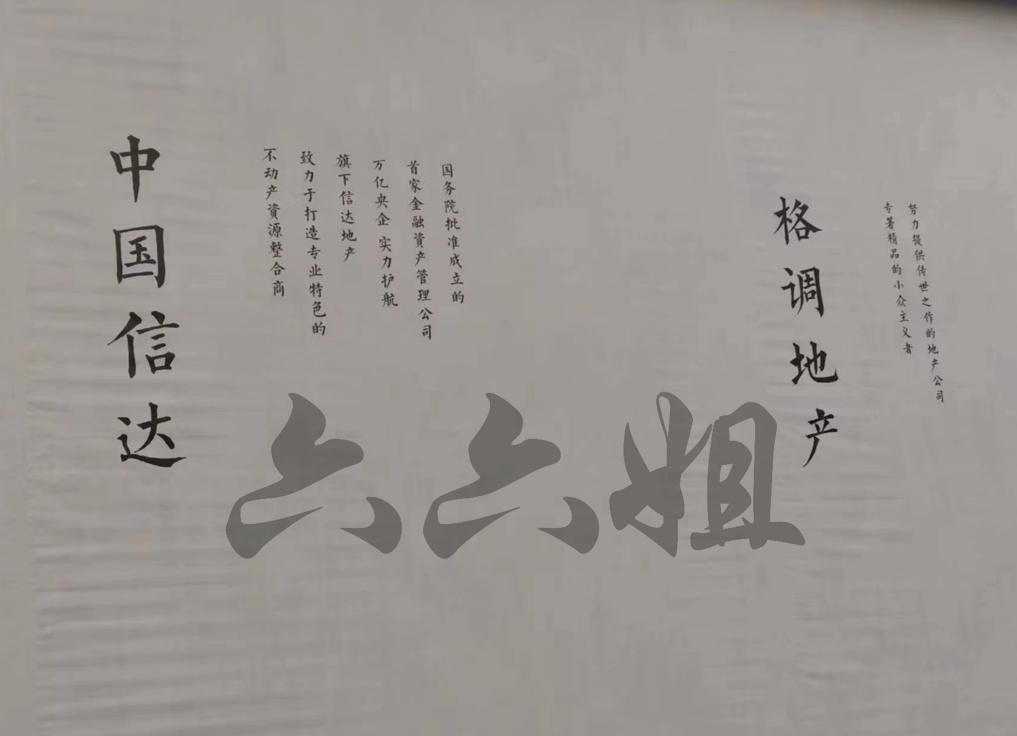 中国信达
国务院批准成立的
首家金融資产管理公司
万亿央企 实力护航
旗下信达地产
致力于打造专业特色的
不动产資源整合商
格调地产
努力提供传世之作的地产公司
专著精品的小众主义者
六六姐